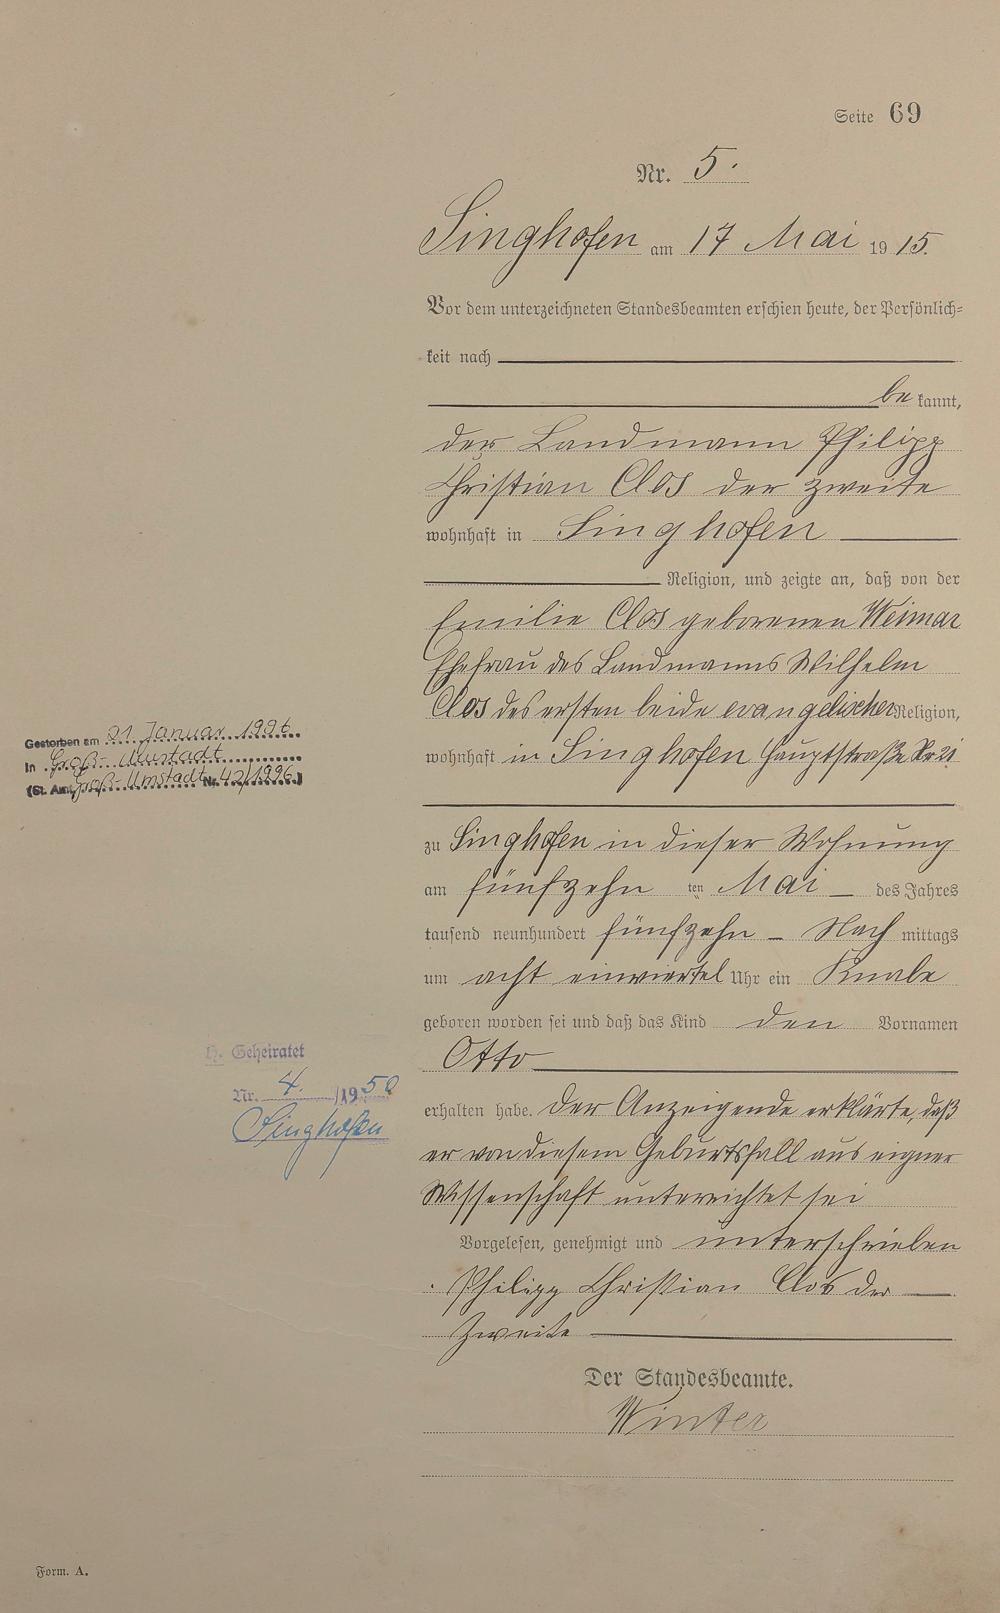 Seite 69
Nr. 5.
Singhofen am 17 Mai 1915.
Vor dem unterzeichneten Standesbeamten erschien heute, der Persönlich-
keit nach
be kannt,
der Landmann Philipp
Christian Clos der zweite
wohnhaft in Singhofen
Religion, und zeigte an, daß von der
Emilie Clos geborenen Weimar
Ehefrau des Landmanns Wilhelm
Clos des ersten beide evangelischer Religion,
wohnhaft in Singhofen Hauptstraße Nr 21
Gestorben am 21. Januar 1996
in Groß-Umstadt
(St. Amt Groß-Umstadt Nr. 42/1996.)
zu Singhofen in dieser Wohnung
am fünfzehn ten Mai des Jahres
tausend neunhundert fünfzehn Nach mittags
um acht einviertel Uhr ein Knabe
geboren worden sei und daß das Kind den Vornamen
Otto
H. Geheiratet
Nr. 4. /1950
Singhofen
erhalten habe. Der Anzeigende erklärte, daß
er von diesem Geburtsfall aus eigner
Wissenschaft unterrichtet sei
Vorgelesen, genehmigt und unterschrieben
Philipp Christian Clos der
Zweite
Der Standesbeamte.
Winter
Form. A.